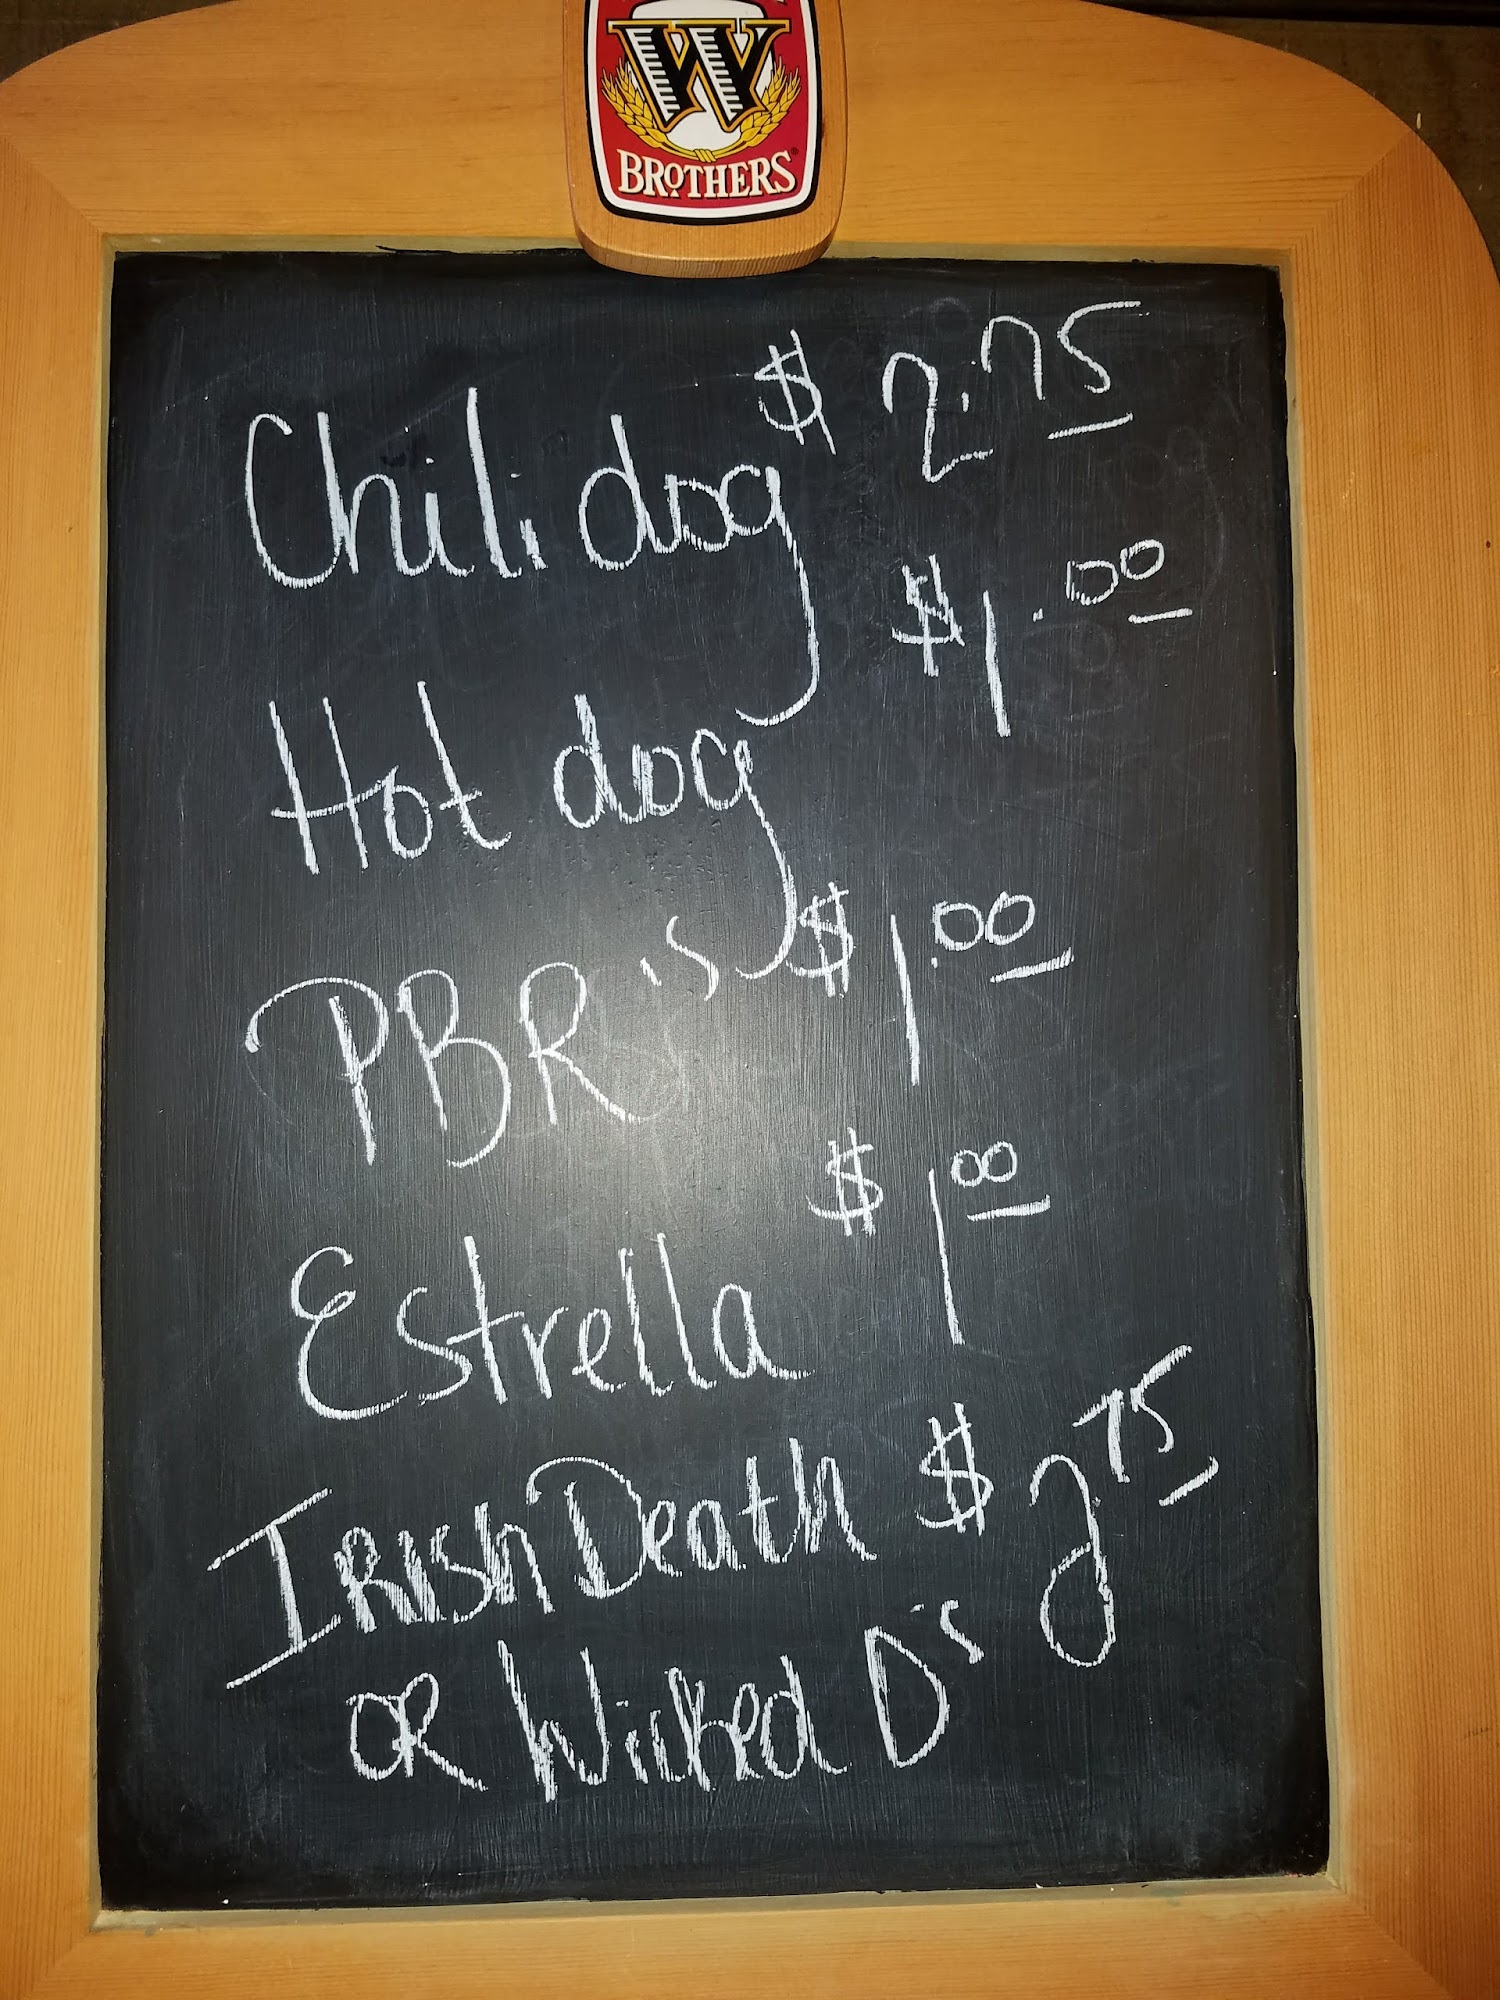 W
BROTHERS®
Chili dog $2.75
Hot dog $1.00
PBR's $1.00
Estrella $1 00
IRISH Death $2 75
OR Wicked D's